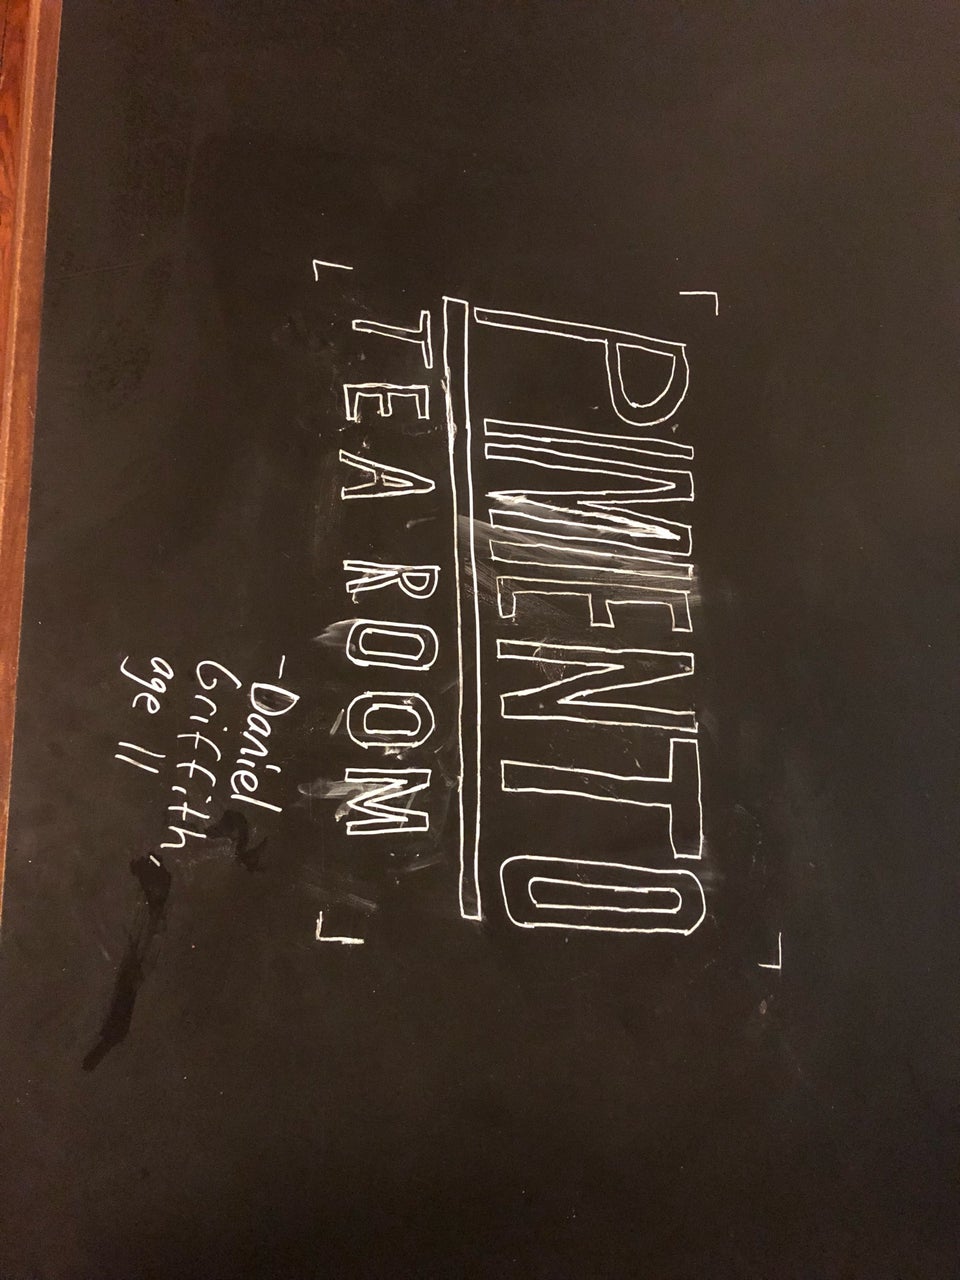 PIMIENTO
TEA ROOM
-Daniel
Griffith,
age 11